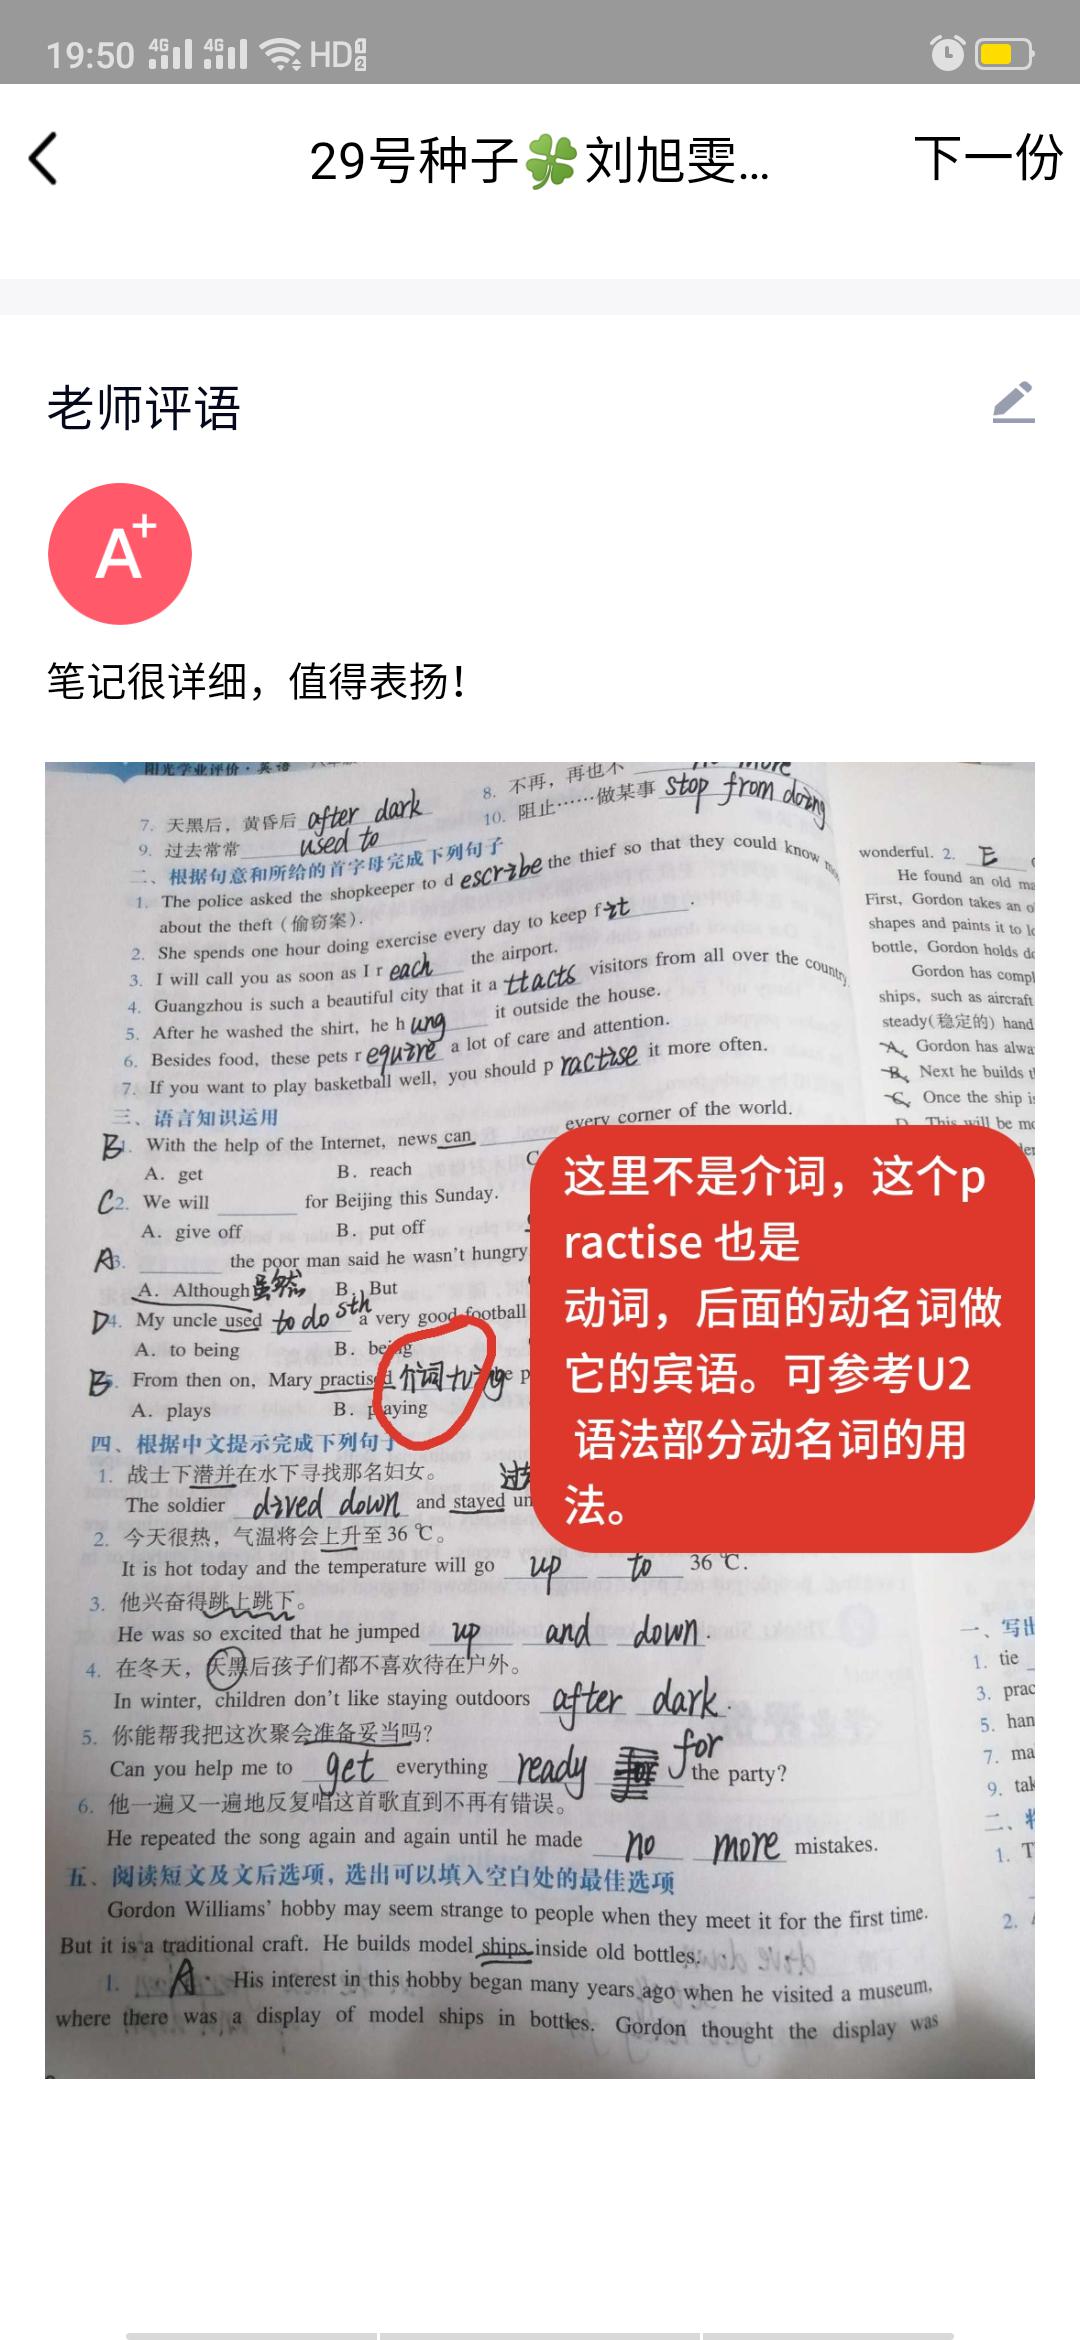 19:50 4G 4G HD 1 2
29号种子🍀刘旭雯... 下一份
老师评语
A+
笔记很详细，值得表扬！
阳光学业评价·英语
8. 不再，再也不 no more
7. 天黑后，黄昏后 after dark
10. 阻止……做某事 stop from doing
9. 过去常常 used to
二、根据句意和所给的首字母完成下列句子
1. The police asked the shopkeeper to describe the thief so that they could know
about the theft (偷窃案).
2. She spends one hour doing exercise every day to keep fit.
3. I will call you as soon as I reach the airport.
4. Guangzhou is such a beautiful city that it attacts visitors from all over the country.
5. After he washed the shirt, he hung it outside the house.
6. Besides food, these pets require a lot of care and attention.
7. If you want to play basketball well, you should practise it more often.
三、语言知识运用
B 1. With the help of the Internet, news can ______ every corner of the world.
A. get B. reach C
C 2. We will ______ for Beijing this Sunday.
A. give off B. put off
A 3. ______ the poor man said he wasn't hungry
A. Although 虽然 B. But
D 4. My uncle used to do sth a very good football
A. to being B. being
B 5. From then on, Mary practised 介词+ving e p
A. plays B. playing
这里不是介词，这个p
ractise 也是
动词，后面的动名词做
它的宾语。可参考U2
语法部分动名词的用
法。
四、根据中文提示完成下列句子
1. 战士下潜并在水下寻找那名妇女。 过
The soldier dived down and stayed un
2. 今天很热，气温将会上升至36 ℃。
It is hot today and the temperature will go up to 36 ℃.
3. 他兴奋得跳上跳下。
He was so excited that he jumped up and down.
4. 在冬天，天黑后孩子们都不喜欢待在户外。
In winter, children don't like staying outdoors after dark.
5. 你能帮我把这次聚会准备妥当吗？
Can you help me to get everything ready for the party?
6. 他一遍又一遍地反复唱这首歌直到不再有错误。
He repeated the song again and again until he made no more mistakes.
五、阅读短文及文后选项，选出可以填入空白处的最佳选项
Gordon Williams' hobby may seem strange to people when they meet it for the first time.
But it is a traditional craft. He builds model ships inside old bottles.
1. A His interest in this hobby began many years ago when he visited a museum,
where there was a display of model ships in bottles. Gordon thought the display was
wonderful. 2. E
He found an old ma
First, Gordon takes an o
shapes and paints it to lo
bottle, Gordon holds do
Gordon has compl
ships, such as aircraft
steady(稳定的) hand
A. Gordon has alwa
B. Next he builds t
C. Once the ship is
D. This will be mo
一、写出
1. tie
3. prac
5. han
7. ma
9. tak
二、
1. T
2.